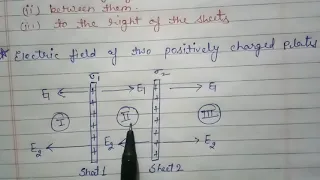 (ii) between them.
(iii) to the right of the sheets
* Electric field of two positively charged plates
σ1 σ2
E1 E1 E1
I II III
E2 E2 E2
Sheet 1 Sheet 2